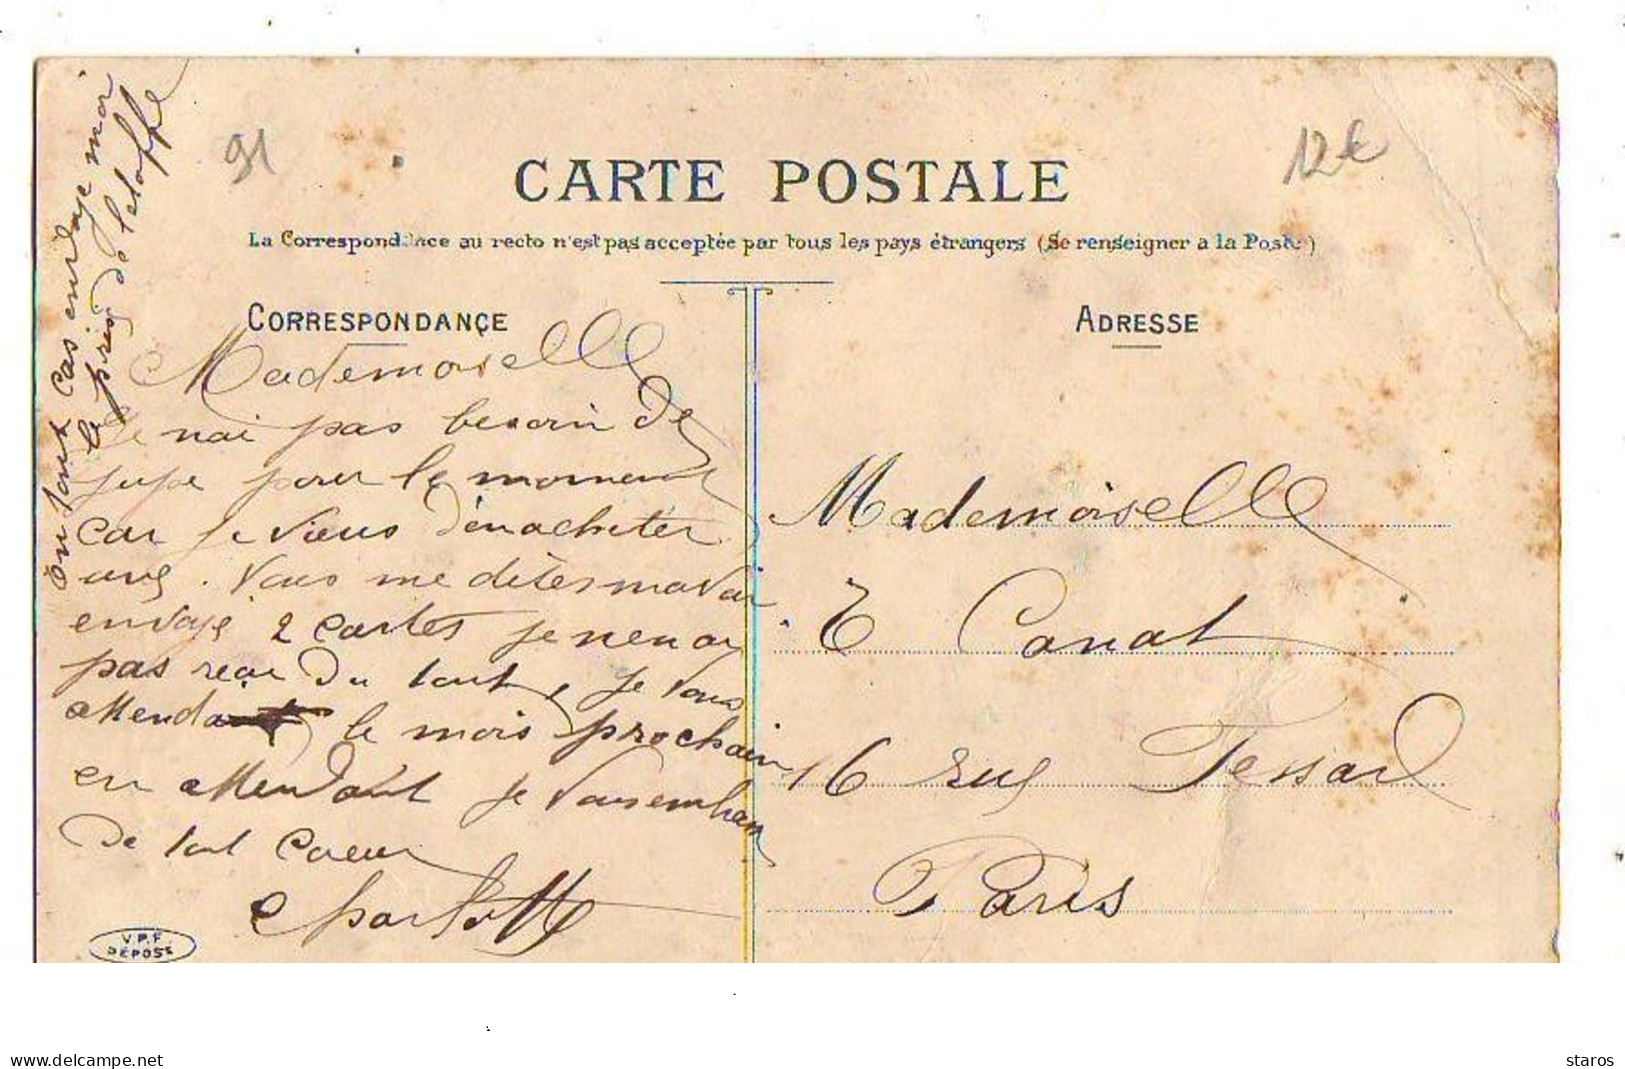 91
12 €
CARTE POSTALE
La Correspondance au recto n'est pas acceptée par tous les pays étrangers (Se renseigner a la Poste)
CORRESPONDANCE
ADRESSE
en tout cas envoye moi
le prix de letoffe
Mademoiselle
Je nai pas besoin de
jupe pour le moment
car je viens d'en acheter
une. Vous me dites mavoir
envoye 2 cartes je nen ai
pas recu du tout, je vous
attend le mois prochain
en attendant je vous embrass
De tout coeur
Charlotte
Mademoiselle
E Canat
16 rue Tessard
Paris
V.P.F
DÉPOSÉ
www.delcampe.net
staros